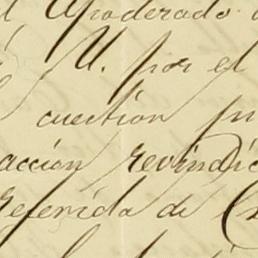 Apoderado
U. por el
cuestión
acción revindic
referida de